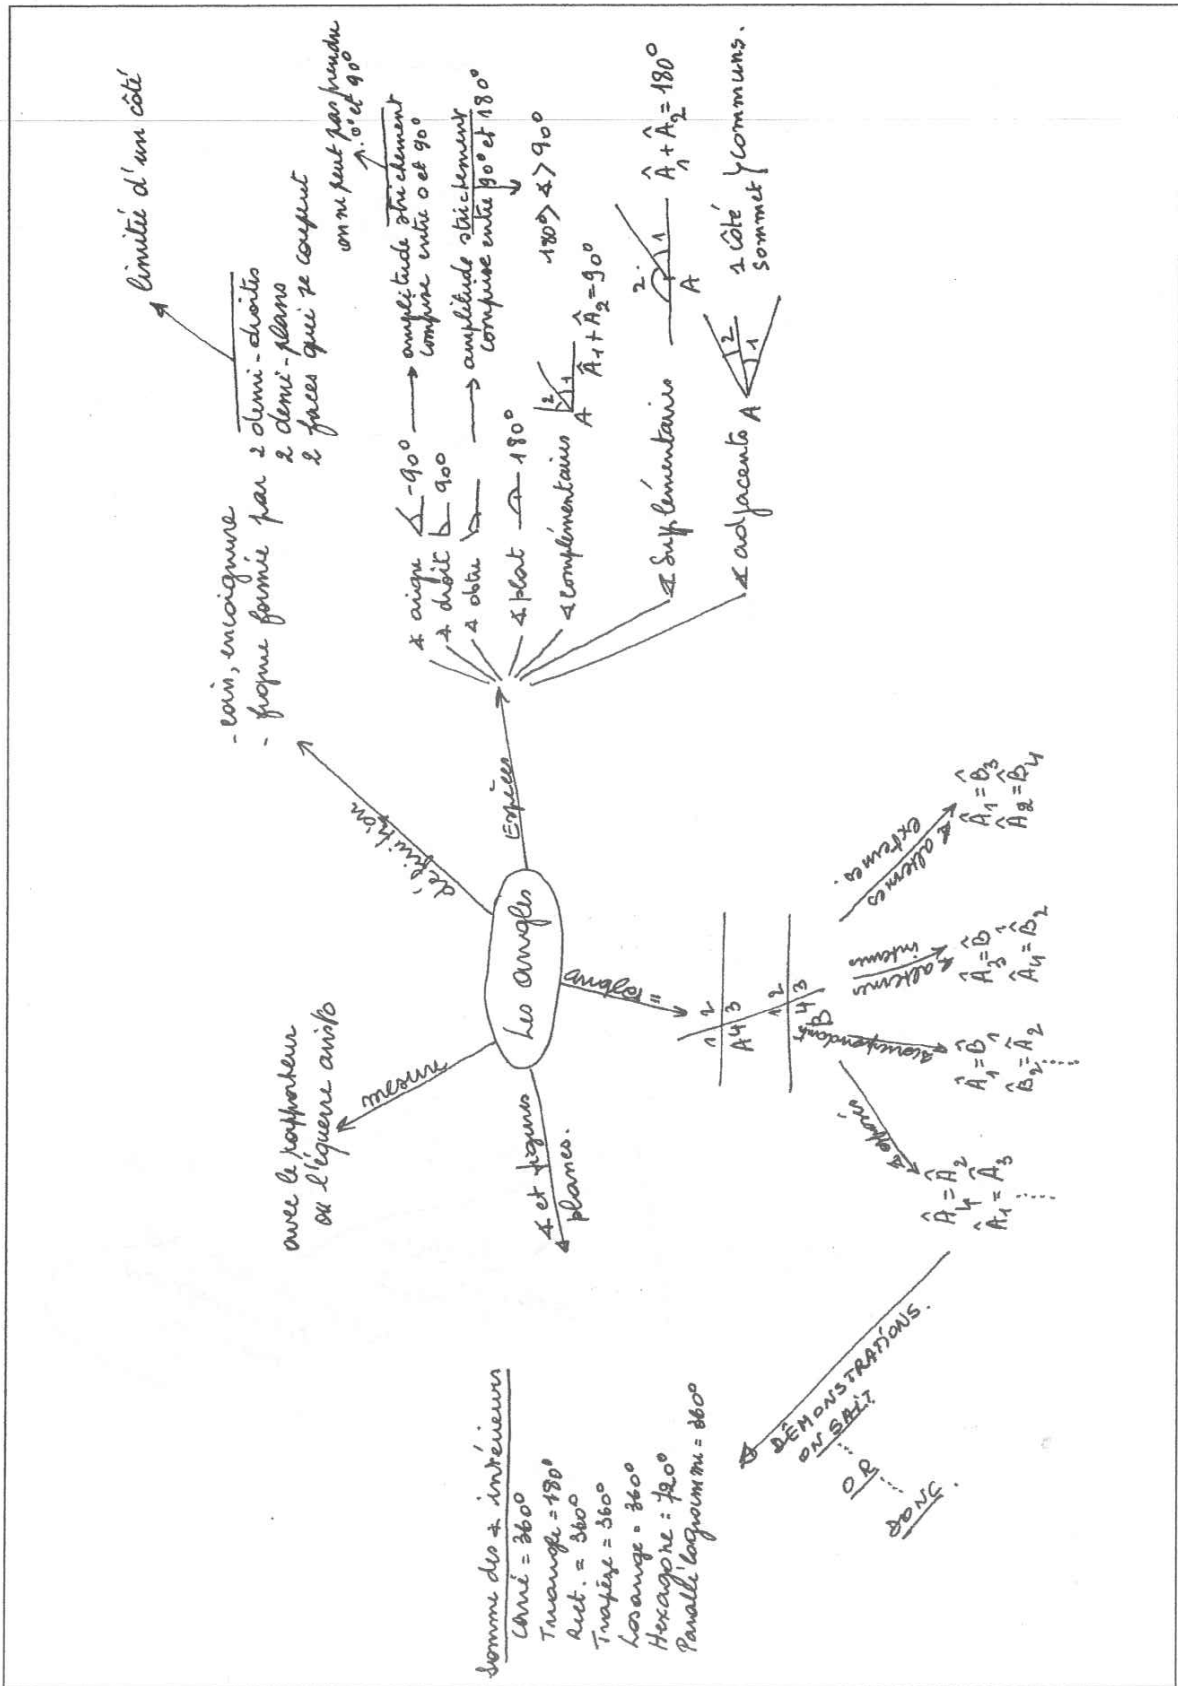 Les angles
définition
- coin, encoignure
- figure formée par 2 demi-droites
2 demi-plans
2 faces qui se coupent
limitée d'un côté
Espèces
∢ aigu -90° → amplitude strictement
comprise entre 0 et 90°
on ne peut pas prendre
0° et 90°
∢ droit 90°
∢ obtu → amplitude strictement
comprise entre 90° et 180°
180° > ∢ > 90°
∢ plat 180°
∢ complémentaires
2
1
A
Â1 + Â2 = 90°
∢ Supplémentaires
2
1
A
Â1 + Â2 = 180°
∢ adjacents A
2
1
1 côté
sommet } communs.
mesure
avec le rapporteur
ou l'équerre aristo
∢ et figures
planes.
Somme des ∢ intérieurs
Carré = 360°
Triangle = 180°
Rect. = 360°
Trapèze = 360°
Losange = 360°
Hexagone = 720°
Parallélogramme = 360°
1 2
A 4 3
1 2
B 4 3
∢ opposés
Â4 = Â2
Â1 = Â3
.....
∢ correspondants
Â1 = B̂1
B̂2 = Â2
.....
∢ alternes
internes
Â3 = B̂1
Â4 = B̂2
∢ alternes
externes.
Â1 = B̂3
Â2 = B̂4
DÉMONSTRATIONS.
ON SAIT
....
OR
....
DONC.